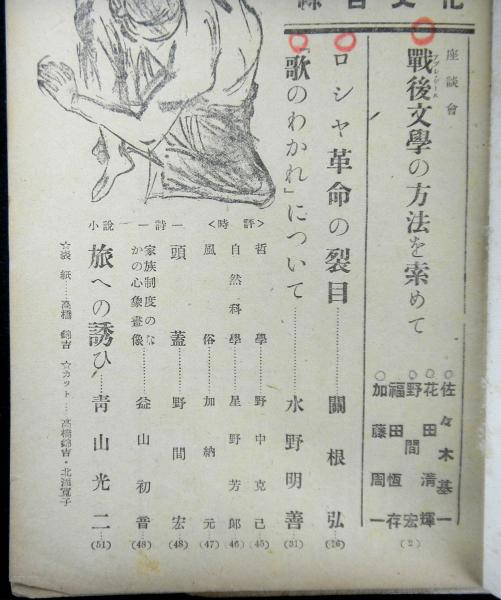 綜合文化
座談會
戰後文學の方法を索めて
アプレゲール
佐々木基一
花田清輝
野間宏
福田恆存
加藤周一
(2)
ロシヤ革命の裂目……關根弘
(16)
「歌のわかれ」について……水野明善
(31)
〈時評〉
哲學……野中克己
(45)
自然科學……星野芳郎
(46)
風俗……加納元
(47)
―詩―
頭蓋……野間宏
(48)
家族制度のなかの心象畫像……益山初音
(48)
―小說
旅への誘ひ……靑山光二
(51)
☆表紙……高橋錦吉 ☆カット……高橋錦吉・北瀧寬子